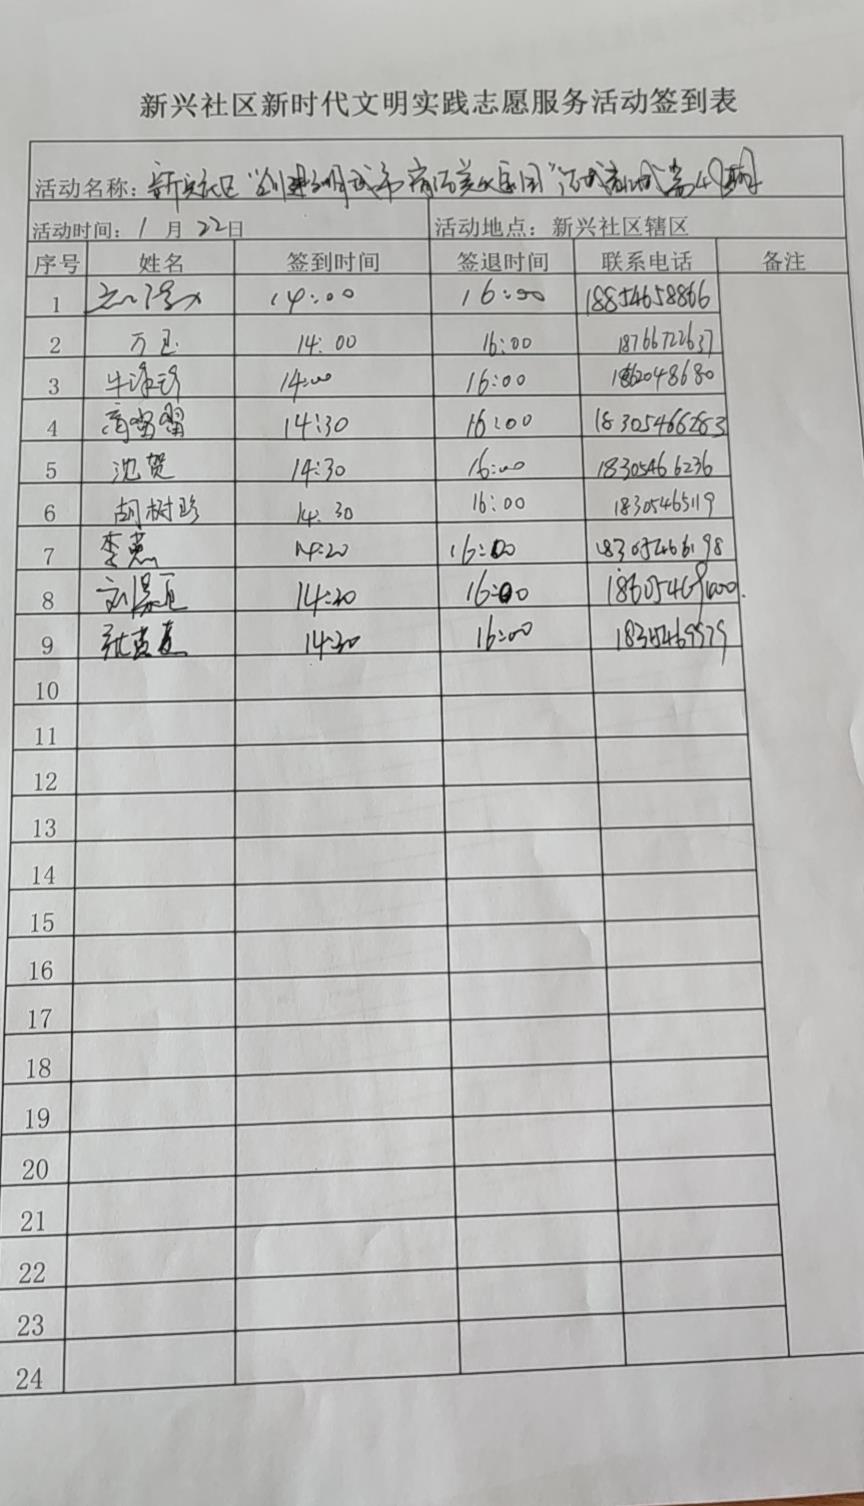 新兴社区新时代文明实践志愿服务活动签到表
活动名称：新兴社区“创建文明城市 家园”活动 第49期
活动时间：1月22日 活动地点：新兴社区辖区
序号 姓名 签到时间 签退时间 联系电话 备注
1 14:00 16:00 18854658866
2 万玉 14:00 16:00 18766722637
3 14:00 16:00
4 14:30 16:00 18305466283
5 沈贺 14:30 16:00 18305466236
6 胡树珍 14:30 16:00 18305465119
7 14:20 16:00 18305466198
8 14:20 16:00
9 14:30 16:00
10
11
12
13
14
15
16
17
18
19
20
21
22
23
24